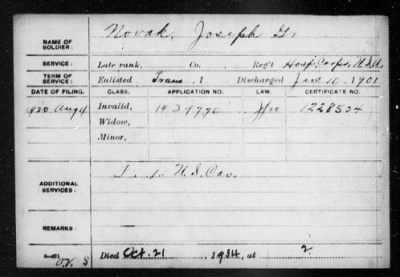 NAME OF SOLDIER: Novak, Joseph G.
SERVICE: Late rank, Co. Reg't Hosp. Corps, U.S.A.
TERM OF SERVICE: Enlisted Discharged Jan. 10, 1901
DATE OF FILING. CLASS. APPLICATION NO. LAW. CERTIFICATE NO.
1920 Aug 4 Invalid, 1228534
Widow,
Minor,
ADDITIONAL SERVICES: U.S. Cav.
REMARKS:
Died Oct. 21 1934, at